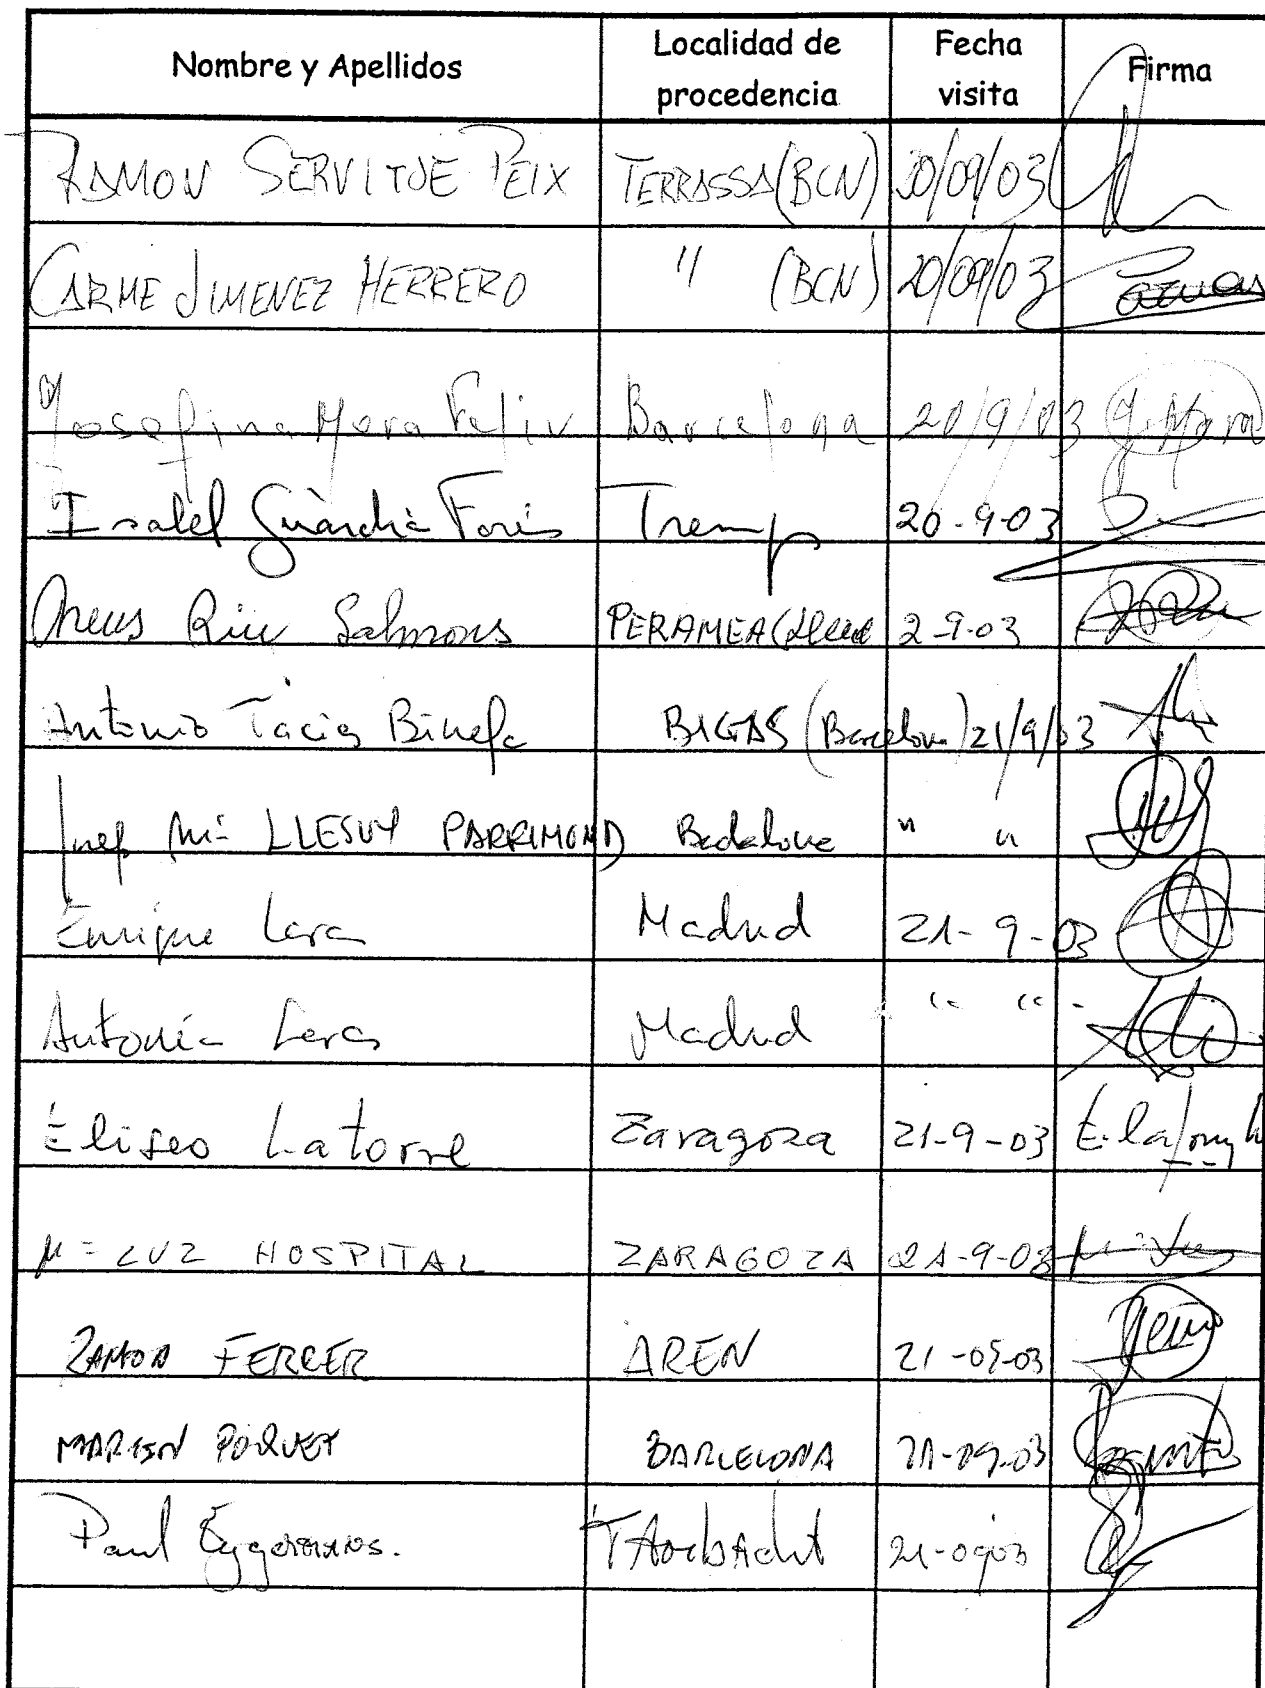 Nombre y Apellidos Localidad de procedencia Fecha visita Firma
RAMON SERVITJE PEIX TERRASSA (BCN) 20/09/03
CARME JIMENEZ HERRERO " (BCN) 20/09/03
Josefina Mora Feliu Barcelona 20/9/03 J. Mora
Isabel Guàrdia Forés Tremp 20-9-03
Neus Riu Salmons PERAMEA 2-9-03
Antonio Tacies Binefa BIGAS (Barcelona) 21/9/03
Josep Mª LLESUY PARRIMOND Badalona " "
Enrique Lara Madrid 21-9-03
Antonia Lara Madrid " "
Eliseo Latorre Zaragoza 21-9-03
Mª LUZ HOSPITAL ZARAGOZA 21-9-03
RAMON FERRER AREN 21-09-03
BARCELONA 21-09-03
Paul 21-0903